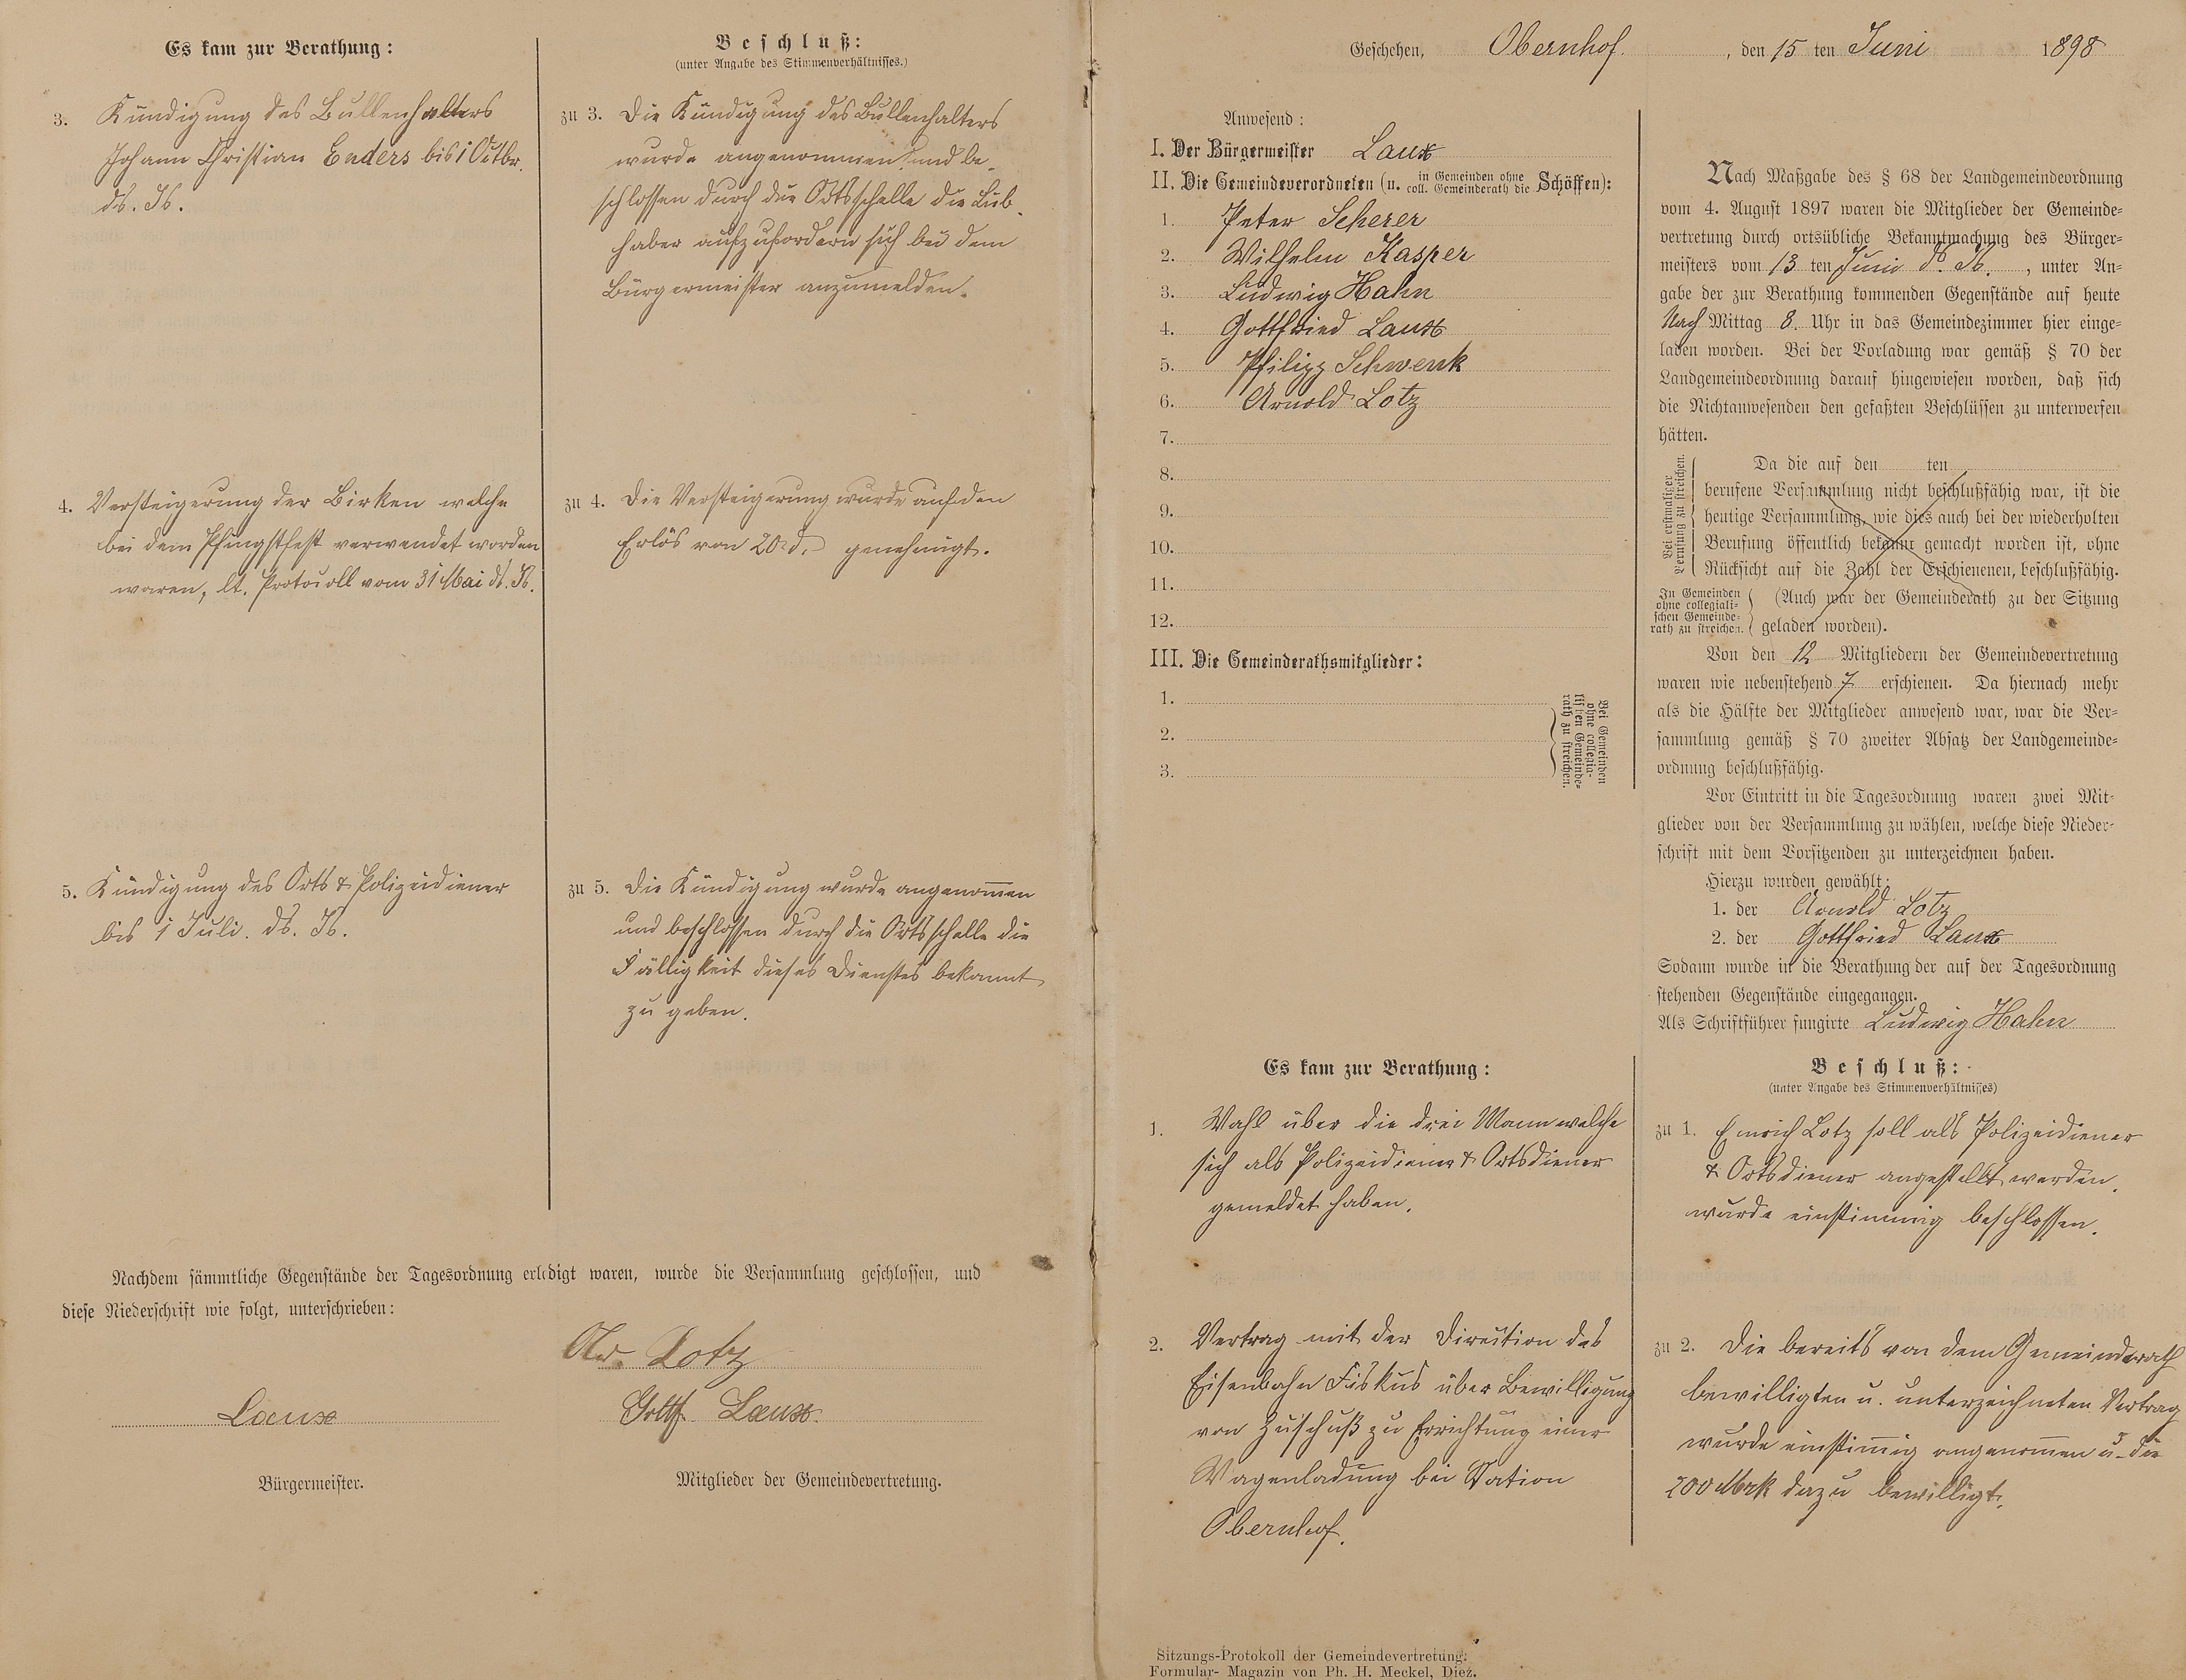 Es kam zur Berathung:
Beschluß:
(unter Angabe des Stimmenverhältnisses.)
3. Kündigung des Bullenhalters
Johann Christian Enders bis 1 Octbr.
ds. Js.
zu 3. Die Kündigung des Bullenhalters
wurde angenommen und be-
schlossen durch die Ortsschelle die Lieb-
haber aufzufordern sich bei dem
Bürgermeister anzumelden.
4. Versteigerung der Birken welche
bei dem Pfingstfest verwendet worden
waren, lt. Protocoll vom 31 Mai ds. Js.
zu 4. Die Versteigerung wurde auf den
Erlös von 20 genehmigt.
5. Kündigung des Orts & Polizeidiener
bis 1 Juli. ds. Js.
zu 5. Die Kündigung wurde angenom̅en
und beschlossen durch die Ortsschelle die
Fälligkeit dieses Dienstes bekannt
zu geben.
Nachdem sämmtliche Gegenstände der Tagesordnung erledigt waren, wurde die Versammlung geschlossen, und
diese Niederschrift wie folgt, unterschrieben:
Ar. Lotz
Laux
Gottf. Laux.
Bürgermeister.
Mitglieder der Gemeindevertretung.
Geschehen, Obernhof. , den 15 ten Juni 1898
Anwesend:
I. Der Bürgermeister Laux
II. Die Gemeindeverordneten (u. in Gemeinden ohne coll. Gemeinderath die Schöffen):
1. Peter Scherer
2. Wilhelm Kasper
3. Ludwig Hahn
4. Gottfried Laux
5. Philipp Schwenk
6. Arnold Lotz
7.
8.
9.
10.
11.
12.
III. Die Gemeinderathsmitglieder:
1.
2.
3.
Bei Gemeinden
ohne collegia-
lischen Gemeinde-
rath zu streichen.
Nach Maßgabe des § 68 der Landgemeindeordnung
vom 4. August 1897 waren die Mitglieder der Gemeinde-
vertretung durch ortsübliche Bekanntmachung des Bürger-
meisters vom 13 ten Juni d. Js. , unter An-
gabe der zur Berathung kommenden Gegenstände auf heute
Nach Mittag 8. Uhr in das Gemeindezimmer hier einge-
laden worden. Bei der Vorladung war gemäß § 70 der
Landgemeindeordnung darauf hingewiesen worden, daß sich
die Nichtanwesenden den gefaßten Beschlüssen zu unterwerfen
hätten.
Bei erstmaliger
Berufung zu streichen.
Da die auf den ten
berufene Versammlung nicht beschlußfähig war, ist die
heutige Versammlung, wie dies auch bei der wiederholten
Berufung öffentlich bekannt gemacht worden ist, ohne
Rücksicht auf die Zahl der Erschienenen, beschlußfähig.
In Gemeinden
ohne collegiali-
schen Gemeinde-
rath zu streichen.
(Auch war der Gemeinderath zu der Sitzung
geladen worden).
Von den 12 Mitgliedern der Gemeindevertretung
waren wie nebenstehend 7 erschienen. Da hiernach mehr
als die Hälfte der Mitglieder anwesend war, war die Ver-
sammlung gemäß § 70 zweiter Absatz der Landgemeinde-
ordnung beschlußfähig.
Vor Eintritt in die Tagesordnung waren zwei Mit-
glieder von der Versammlung zu wählen, welche diese Nieder-
schrift mit dem Vorsitzenden zu unterzeichnen haben.
Hierzu wurden gewählt:
1. der Arnold Lotz
2. der Gottfried Laux
Sodann wurde in die Berathung der auf der Tagesordnung
stehenden Gegenstände eingegangen.
Als Schriftführer fungirte Ludwig Hahn
Es kam zur Berathung:
Beschluß:
(unter Angabe des Stimmenverhältnisses)
1. Wahl über die drei Mann welche
sich als Polizeidiener & Ortsdiener
gemeldet haben.
zu 1. Emrich Lotz soll als Polizeidiener
& Ortsdiener angestellt werden.
wurde einstimmig beschlossen.
2. Vertrag mit der Direction des
Eisenbahn Fiskus über Bewilligung
von Zuschuß zu Errichtung einer
Wagenladung bei Station
Obernhof.
zu 2. Die bereits von dem Gemeinderath
bewilligten u. unterzeichneten Vertrag
wurde einstim̅ig angenom̅en u. die
200 Mrk dazu bewilligt.
Sitzungs-Protokoll der Gemeindevertretung.
Formular-Magazin von Ph. H. Meckel, Diez.